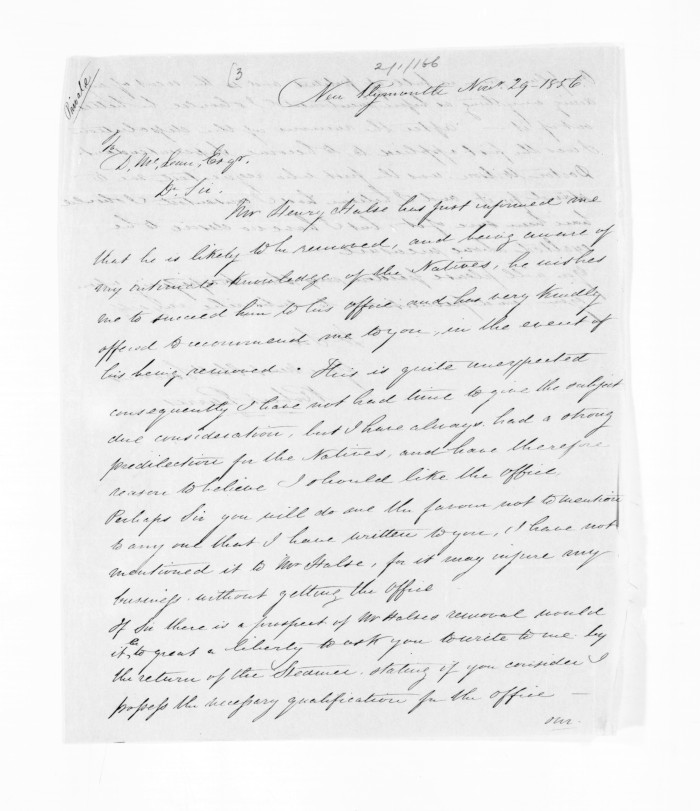 Private
(3
2/1/166
New Plymouth Novr. 29 - 1856
D. McLean, Esqr.
Dr. Sir.
Mr Henry Halse has just informed me
that he is likely to be removed, and being aware of
my intimate knowledge of the Natives, he wishes
me to succeed him to his office and has very kindly
offered to recommend me to you, in the event of
his being removed. This is quite unexpected
consequently I have not had time to give the subject
due consideration, but I have always had a strong
predilection for the Natives, and have therefore
reason to believe I should like the office
Perhaps Sir you will do me the favour not to mention
to any one that I have written to you, I have not
mentioned it to Mr Halse, for it may injure my
business without getting the office
If Sir there is a prospect of Mr Halses removal would
it be to great a liberty to ask you to write to me by
the return of the Steamer stating if you consider I
possess the necessary qualification for the office —